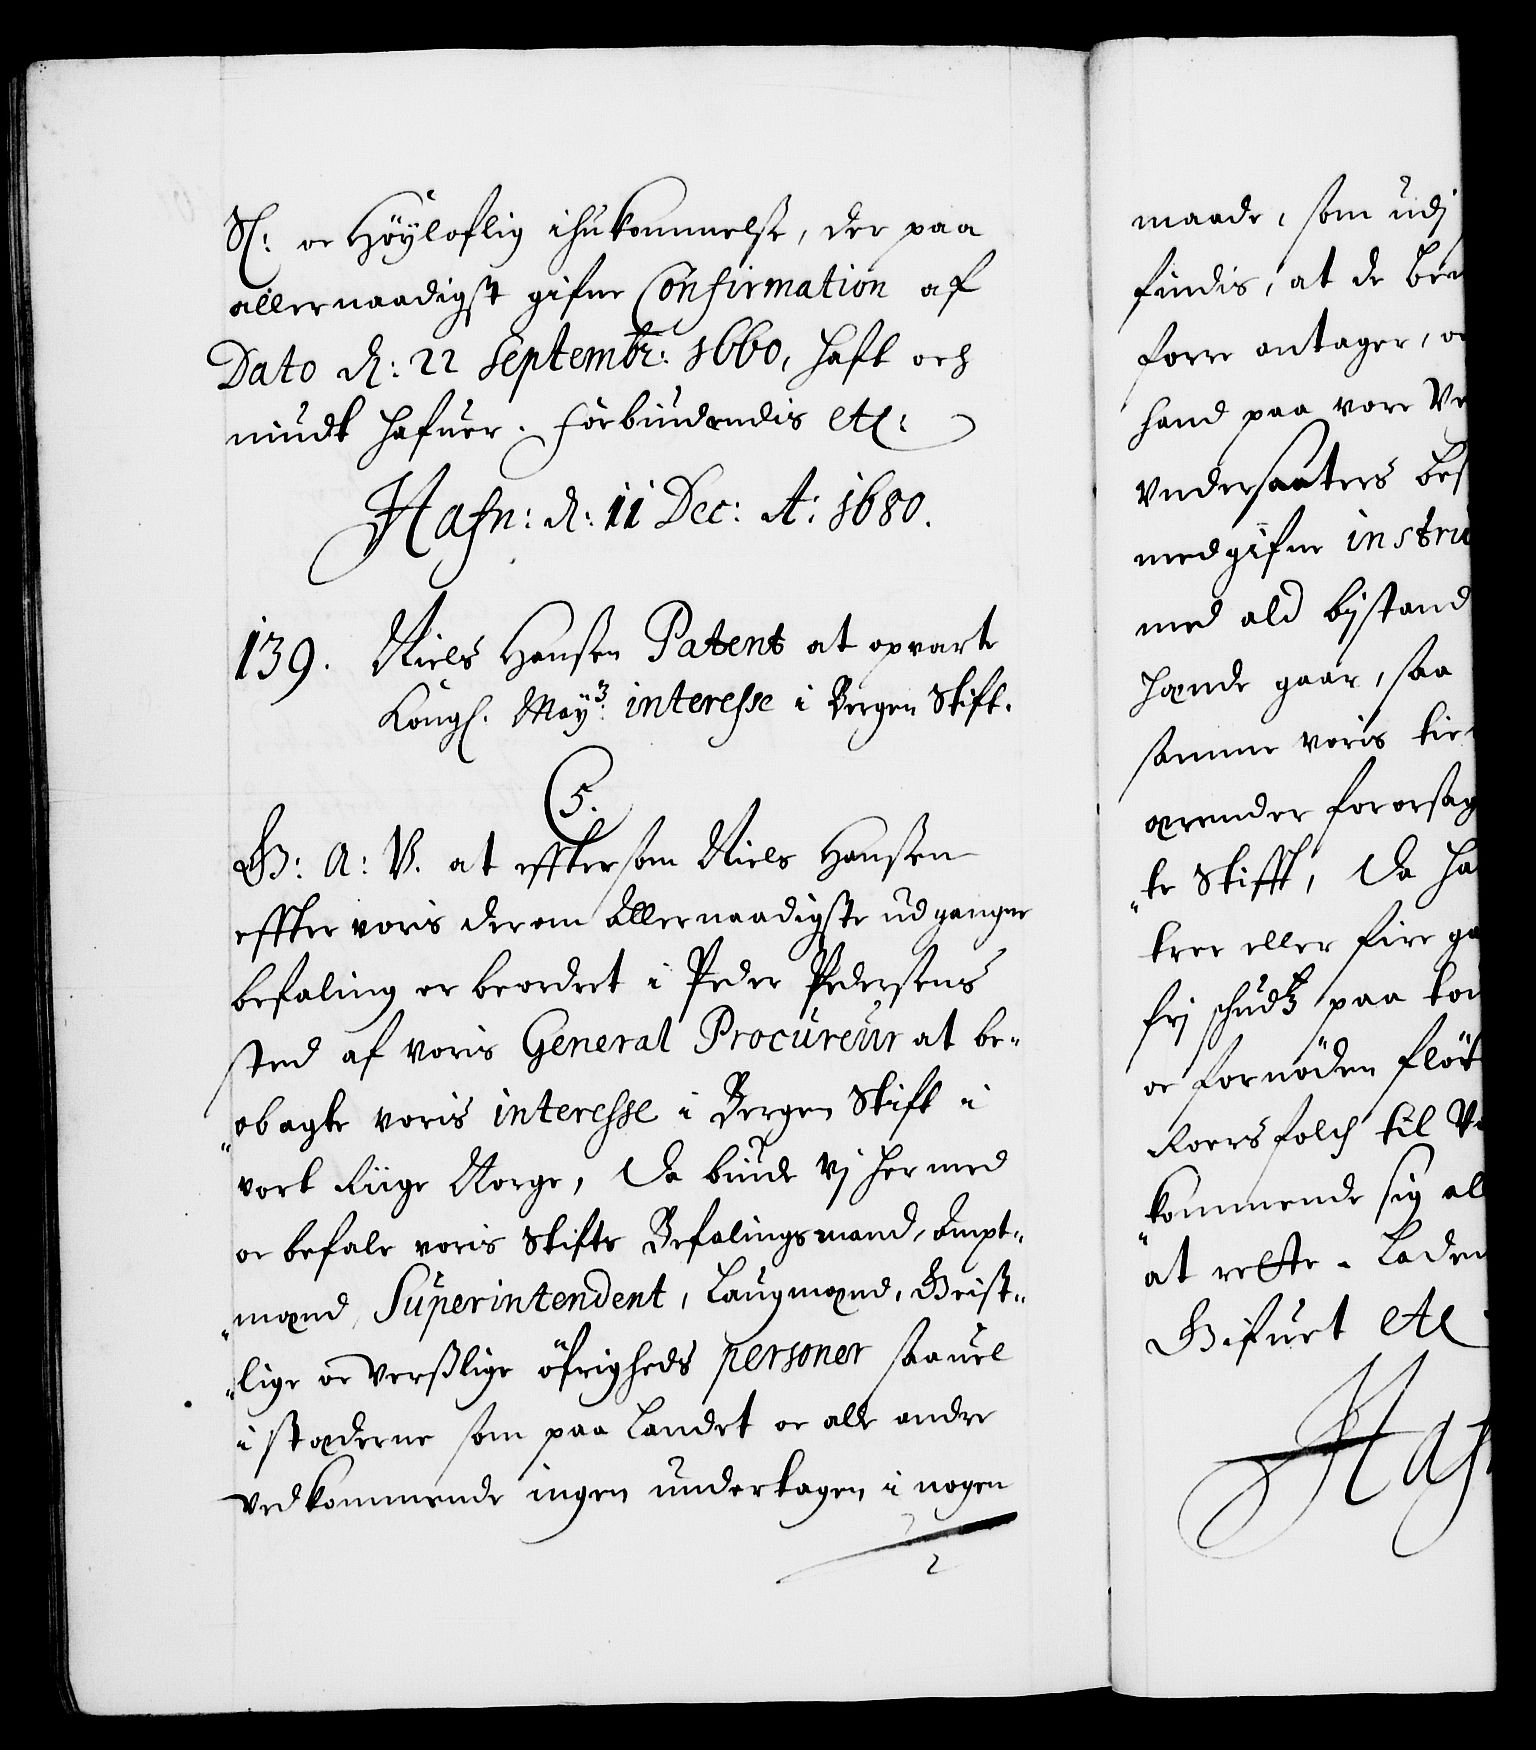 Sl: oc Höyloflig ihukommelse, der paa
allernaadigst gifne Confirmation af
Dato d: 22 Septembr: 1660, haft och
niudt hafuer. Forbiudendis etc:
Hafn: d: 11 Dec: A: 1680.
139. Niels Hansen Patent at opvarte
Kongl. May: interesse i Bergen Stift.
C5.
G: A: V. at efftersom Niels Hansen
effter voris derom Allernaadigste udgangne
befaling er beordret i Peder Pedersens
sted af voris General Procureur at be-
„obagte voris interesse i Bergen Stift i
vort Riige Norge, Da biude Vj hermed
oc befale voris Stifts Befalingsmand, Ampt-
„mænd, Superintendent, Laugmænd, Geist-
„lige oc Verßlige öfrigheds personer saavel
i stæderne som paa Landet oc alle andre
vedkommende ingen undertagen i nogen
maade, som udj
findis, at de ben
forre antager, oc
hand paa vore Ve
Undersaaters bes
medgifne instru
med ald bijstand
hænde gaar, saa
samme voris tie
ærender forarsag
„te Stifft, Da ha
tree eller fire ga
frj schudtz paa
oc fornöden flöt
Roersfolch til V
„kommende sig al
at rette. Laden
Gifuet etc
Haf